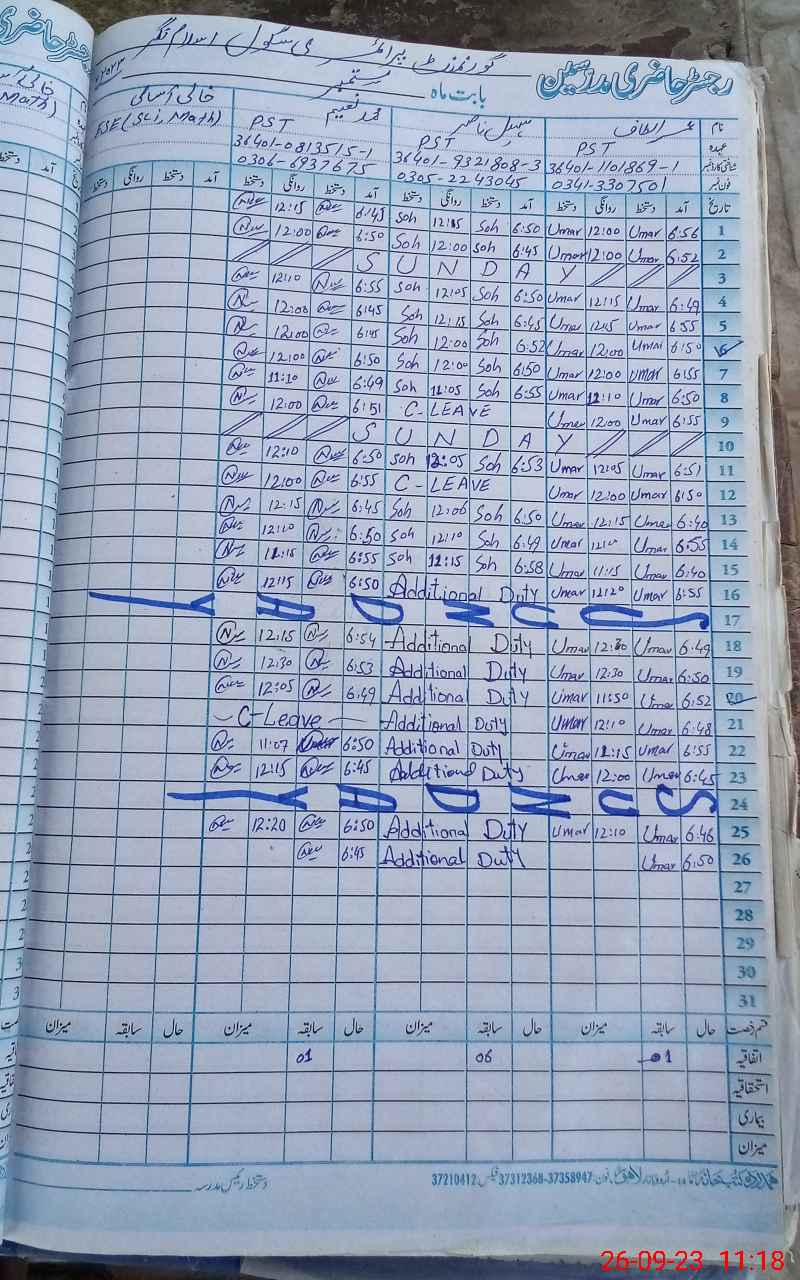 رجسٹر حاضری مدرسین
گورنمنٹ پرائمری سکول اسلام نگر
بابت ماہ ستمبر ۲۰۲۳ء
نام عمر الطاف سہیل ناصر محمد نعیم خالی اسامی
عہدہ PST PST PST ESE (Sci, Math)
شناختی کارڈ نمبر 36401-1101869-1 36401-9321808-3 36401-0813515-1
فون نمبر 0341-3307501 0305-2243045 0306-6937675
تاریخ آمد دستخط روانگی دستخط آمد دستخط روانگی دستخط آمد دستخط روانگی دستخط آمد دستخط روانگی دستخط
1 6:56 Umar 12:00 Umar 6:50 Soh 12:15 Soh 6:45 12:15
2 6:52 Umar 12:00 Umar 6:45 Soh 12:00 Soh 6:50 12:00
3 SUNDAY
4 6:49 Umar 12:15 Umar 6:50 Soh 12:05 Soh 6:55 12:10
5 6:55 Umar 12:15 Umar 6:45 Soh 12:15 Soh 6:45 12:00
6 6:50 Umar 12:00 Umar 6:52 Soh 12:00 Soh 6:45 12:00
7 6:55 Umar 12:00 Umar 6:50 Soh 12:00 Soh 6:50 12:00
8 6:50 Umar 12:10 Umar 6:55 Soh 11:05 Soh 6:49 11:10
9 6:55 Umar 12:00 Umar C-LEAVE 6:51 12:00
10 SUNDAY
11 6:51 Umar 12:05 Umar 6:53 Soh 12:05 Soh 6:50 12:10
12 6:50 Umar 12:00 Umar C-LEAVE 6:55 12:00
13 6:40 Umar 12:15 Umar 6:50 Soh 12:06 Soh 6:45 12:15
14 6:55 Umar 12:10 Umar 6:49 Soh 12:10 Soh 6:50 12:10
15 6:40 Umar 11:15 Umar 6:58 Soh 11:15 Soh 6:55 11:15
16 6:55 Umar 12:20 Umar Additional Duty 6:50 12:15
17 SUNDAY
18 6:49 Umar 12:30 Umar Additional Duty 6:54 12:15
19 6:50 Umar 12:30 Umar Additional Duty 6:53 12:30
20 6:52 Umar 11:50 Umar Additional Duty 6:49 12:05
21 6:48 Umar 12:10 Umar Additional Duty C-Leave
22 6:55 Umar 11:15 Umar Additional Duty 6:50 11:07
23 6:45 Umar 12:00 Umar Additional Duty 6:45 12:15
24 SUNDAY
25 6:46 Umar 12:10 Umar Additional Duty 6:50 12:20
26 6:50 Umar Additional Duty 6:45
27
28
29
30
31
قسم رخصت حال سابقہ میزان حال سابقہ میزان حال سابقہ میزان حال سابقہ میزان
اتفاقیہ 01 06 01
استحقاقیہ
بیماری
میزان
دستخط رئیس مدرسہ
اردو بازار لاہور فون: 37358947-37312368 فیکس: 37210412
26-09-23 11:18